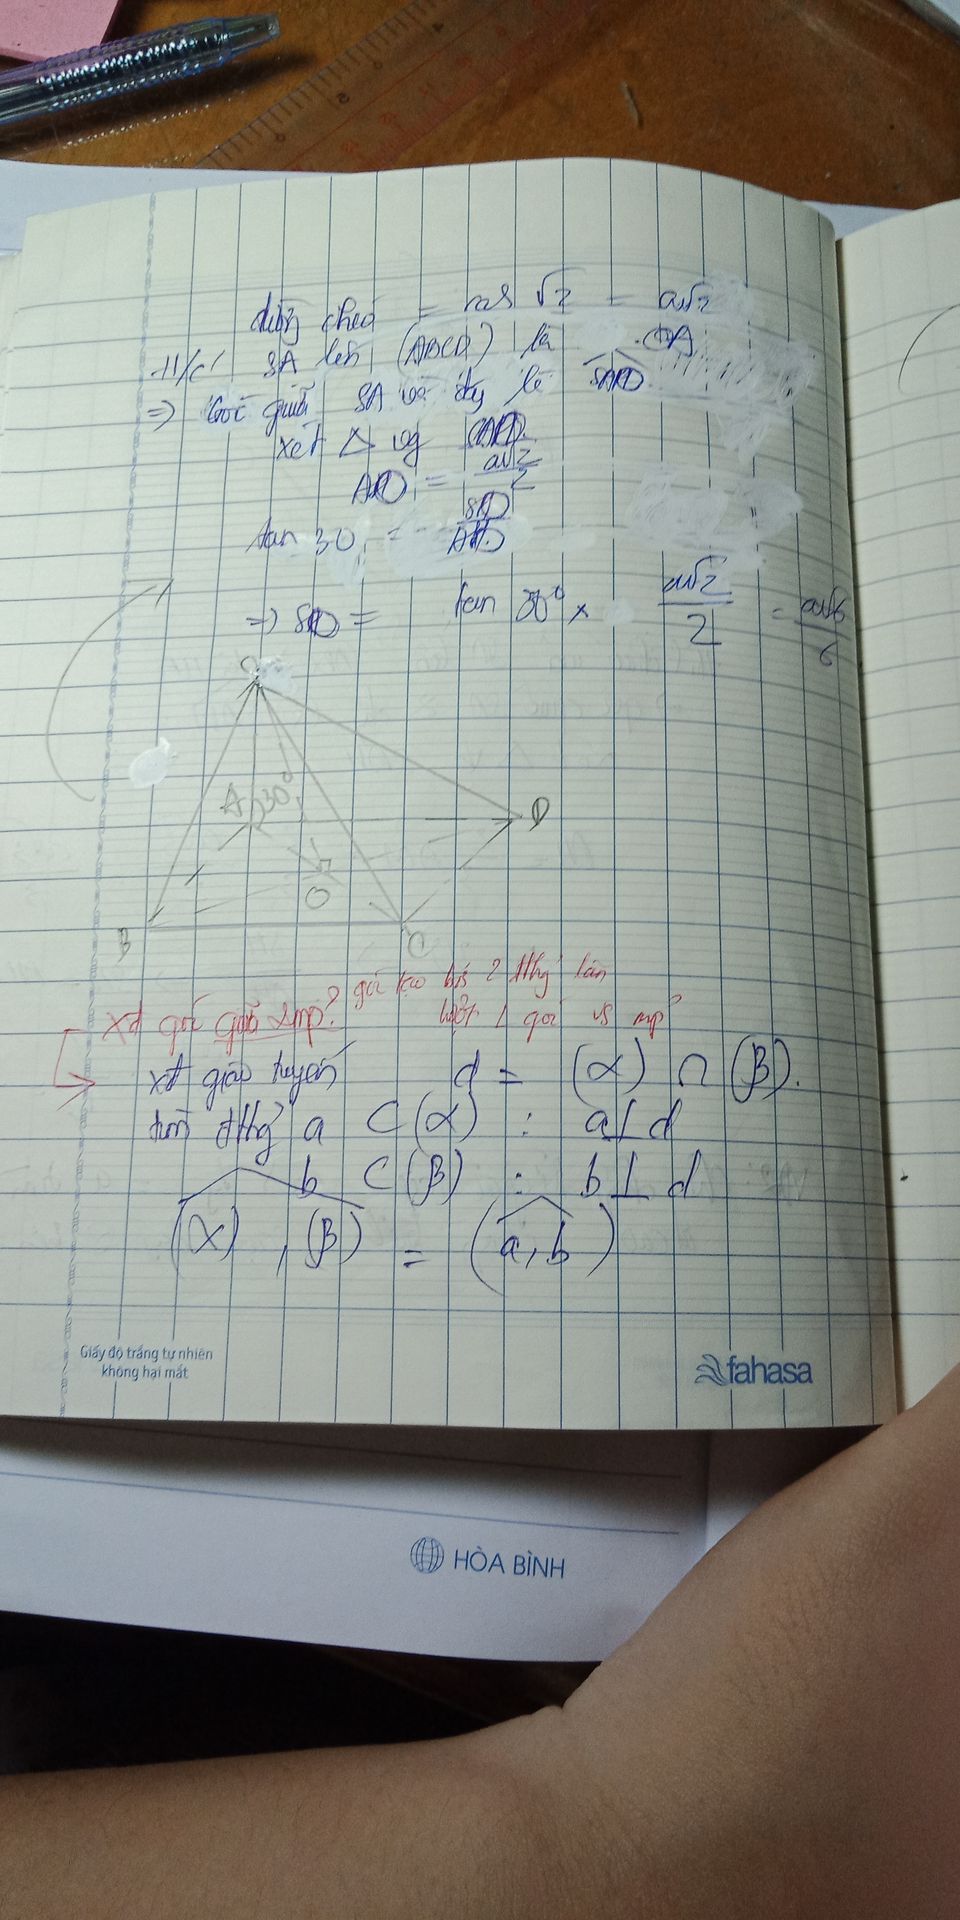 đường chéo = cạh √2 = a√2
H/c' SA lên (ABCD) là OA
=> Góc giữa SA và đáy là SAO
xét △ vg SAO
AO = a√2/2
tan 30 = SO/AO
=> SO = tan 30° x a√2/2 = a√6/6
A 30°
D
O
B
C
Xđ góc giữa 2mp? góc tạo bởi 2 đthg lần
lượt ⊥ góc vs mp
xđ giao tuyến d = (α) ∩ (β).
tìm đthg a ⊂ (α) : a ⊥ d
b ⊂ (β) : b ⊥ d
(α), (β) = (a, b)
Giấy độ trắng tự nhiên
không hại mắt
fahasa
HÒA BÌNH